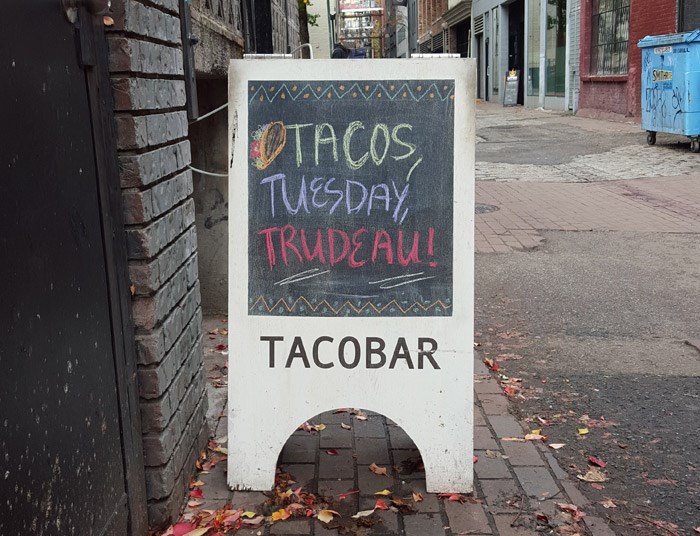 TACOS,
TUESDAY,
TRUDEAU!
TACOBAR
SMITHRITE